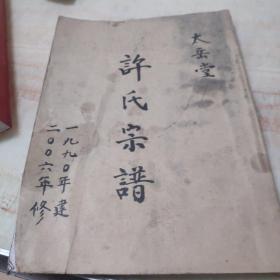 太岳堂
許氏宗譜
一九九〇年建
二〇〇六年修